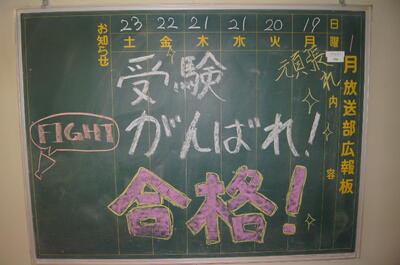 1月放送部広報板
日 19 20 21 21 22 23
曜 月 火 水 木 金 土
内容
お知らせ
頑張れ
受験
がんばれ!
合格!
FIGHT